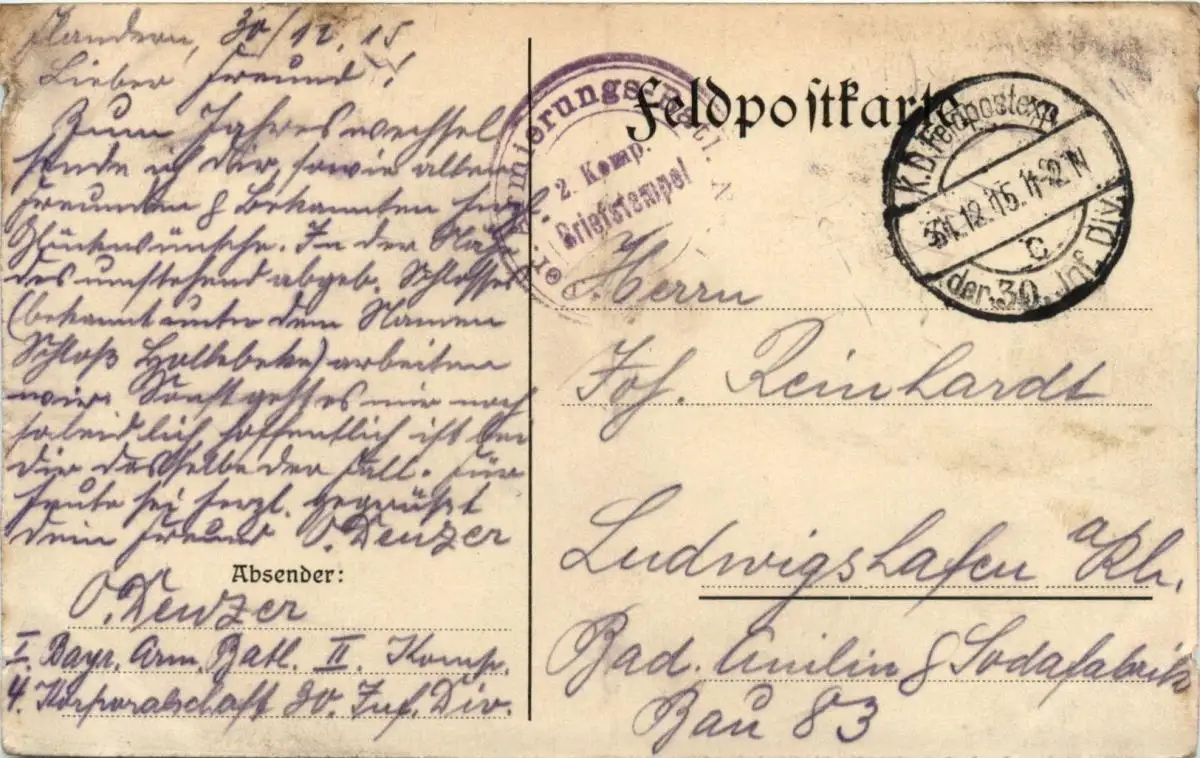 Flandern, 30/12. 15
Lieber Freund!
Zum Jahreswechsel
sende ich Dir, sowie allen
Freunden & Bekannten herzl.
Glückwünsche. In der Nähe
des umstehend abgeb. Schlosses
(bekannt unter dem Namen
Schloß Hollebeke) arbeiten
wir. Sonst geht es mir noch
so leidlich hoffentlich ist bei
dir dasselbe der Fall. Für
heute sei herzl. gegrüßt
dein Freund O. Denzer
Absender:
O. Denzer
I. Bayr. Arm. Batl. II. Komp.
4. Korporalschaft 30. Inf. Div.
Feldpostkarte
Armierungs-Batl.
2. Komp.
Briefstempel
K.D. Feldpostexp.
31.12.15. 11-12 N
c
der 30. Inf. Div.
Herrn
Joh. Reinhardt
Ludwigshafen a/Rh.
Bad. Anilin & Sodafabrik
Bau 83